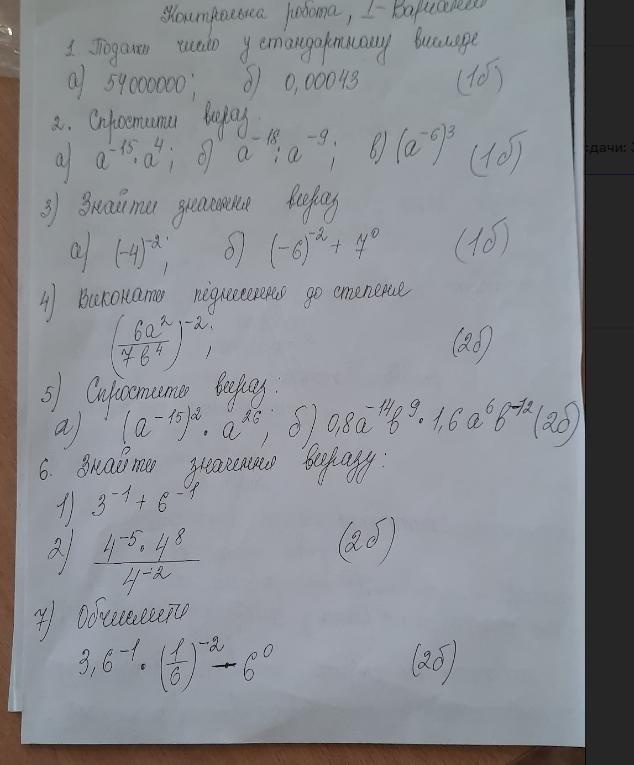 Контрольна робота, I-Вариант
1. Подати число у стандартному вигляде
а) 54000000; б) 0,00043 (1б)
2. Спростити вираз
а) a⁻¹⁵·a⁴; б) a⁻¹⁸:a⁻⁹; в) (a⁻⁶)³ (1б)
3) Знайти значення вираз
а) (-4)⁻²; б) (-6)⁻² + 7⁰ (1б)
4) Виконати піднесення до степеня
(6a²/7b⁴)⁻²; (2б)
5) Спростити вираз:
а) (a⁻¹⁵)² · a²⁶; б) 0,8a⁻¹⁴b⁹ · 1,6a⁶b⁻¹² (2б)
6. Знайти значення виразу:
1) 3⁻¹ + 6⁻¹
2) 4⁻⁵·4⁸/4⁻² (2б)
7) Обчислити
3,6⁻¹ · (1/6)⁻² - 6⁰ (2б)
сдачи: